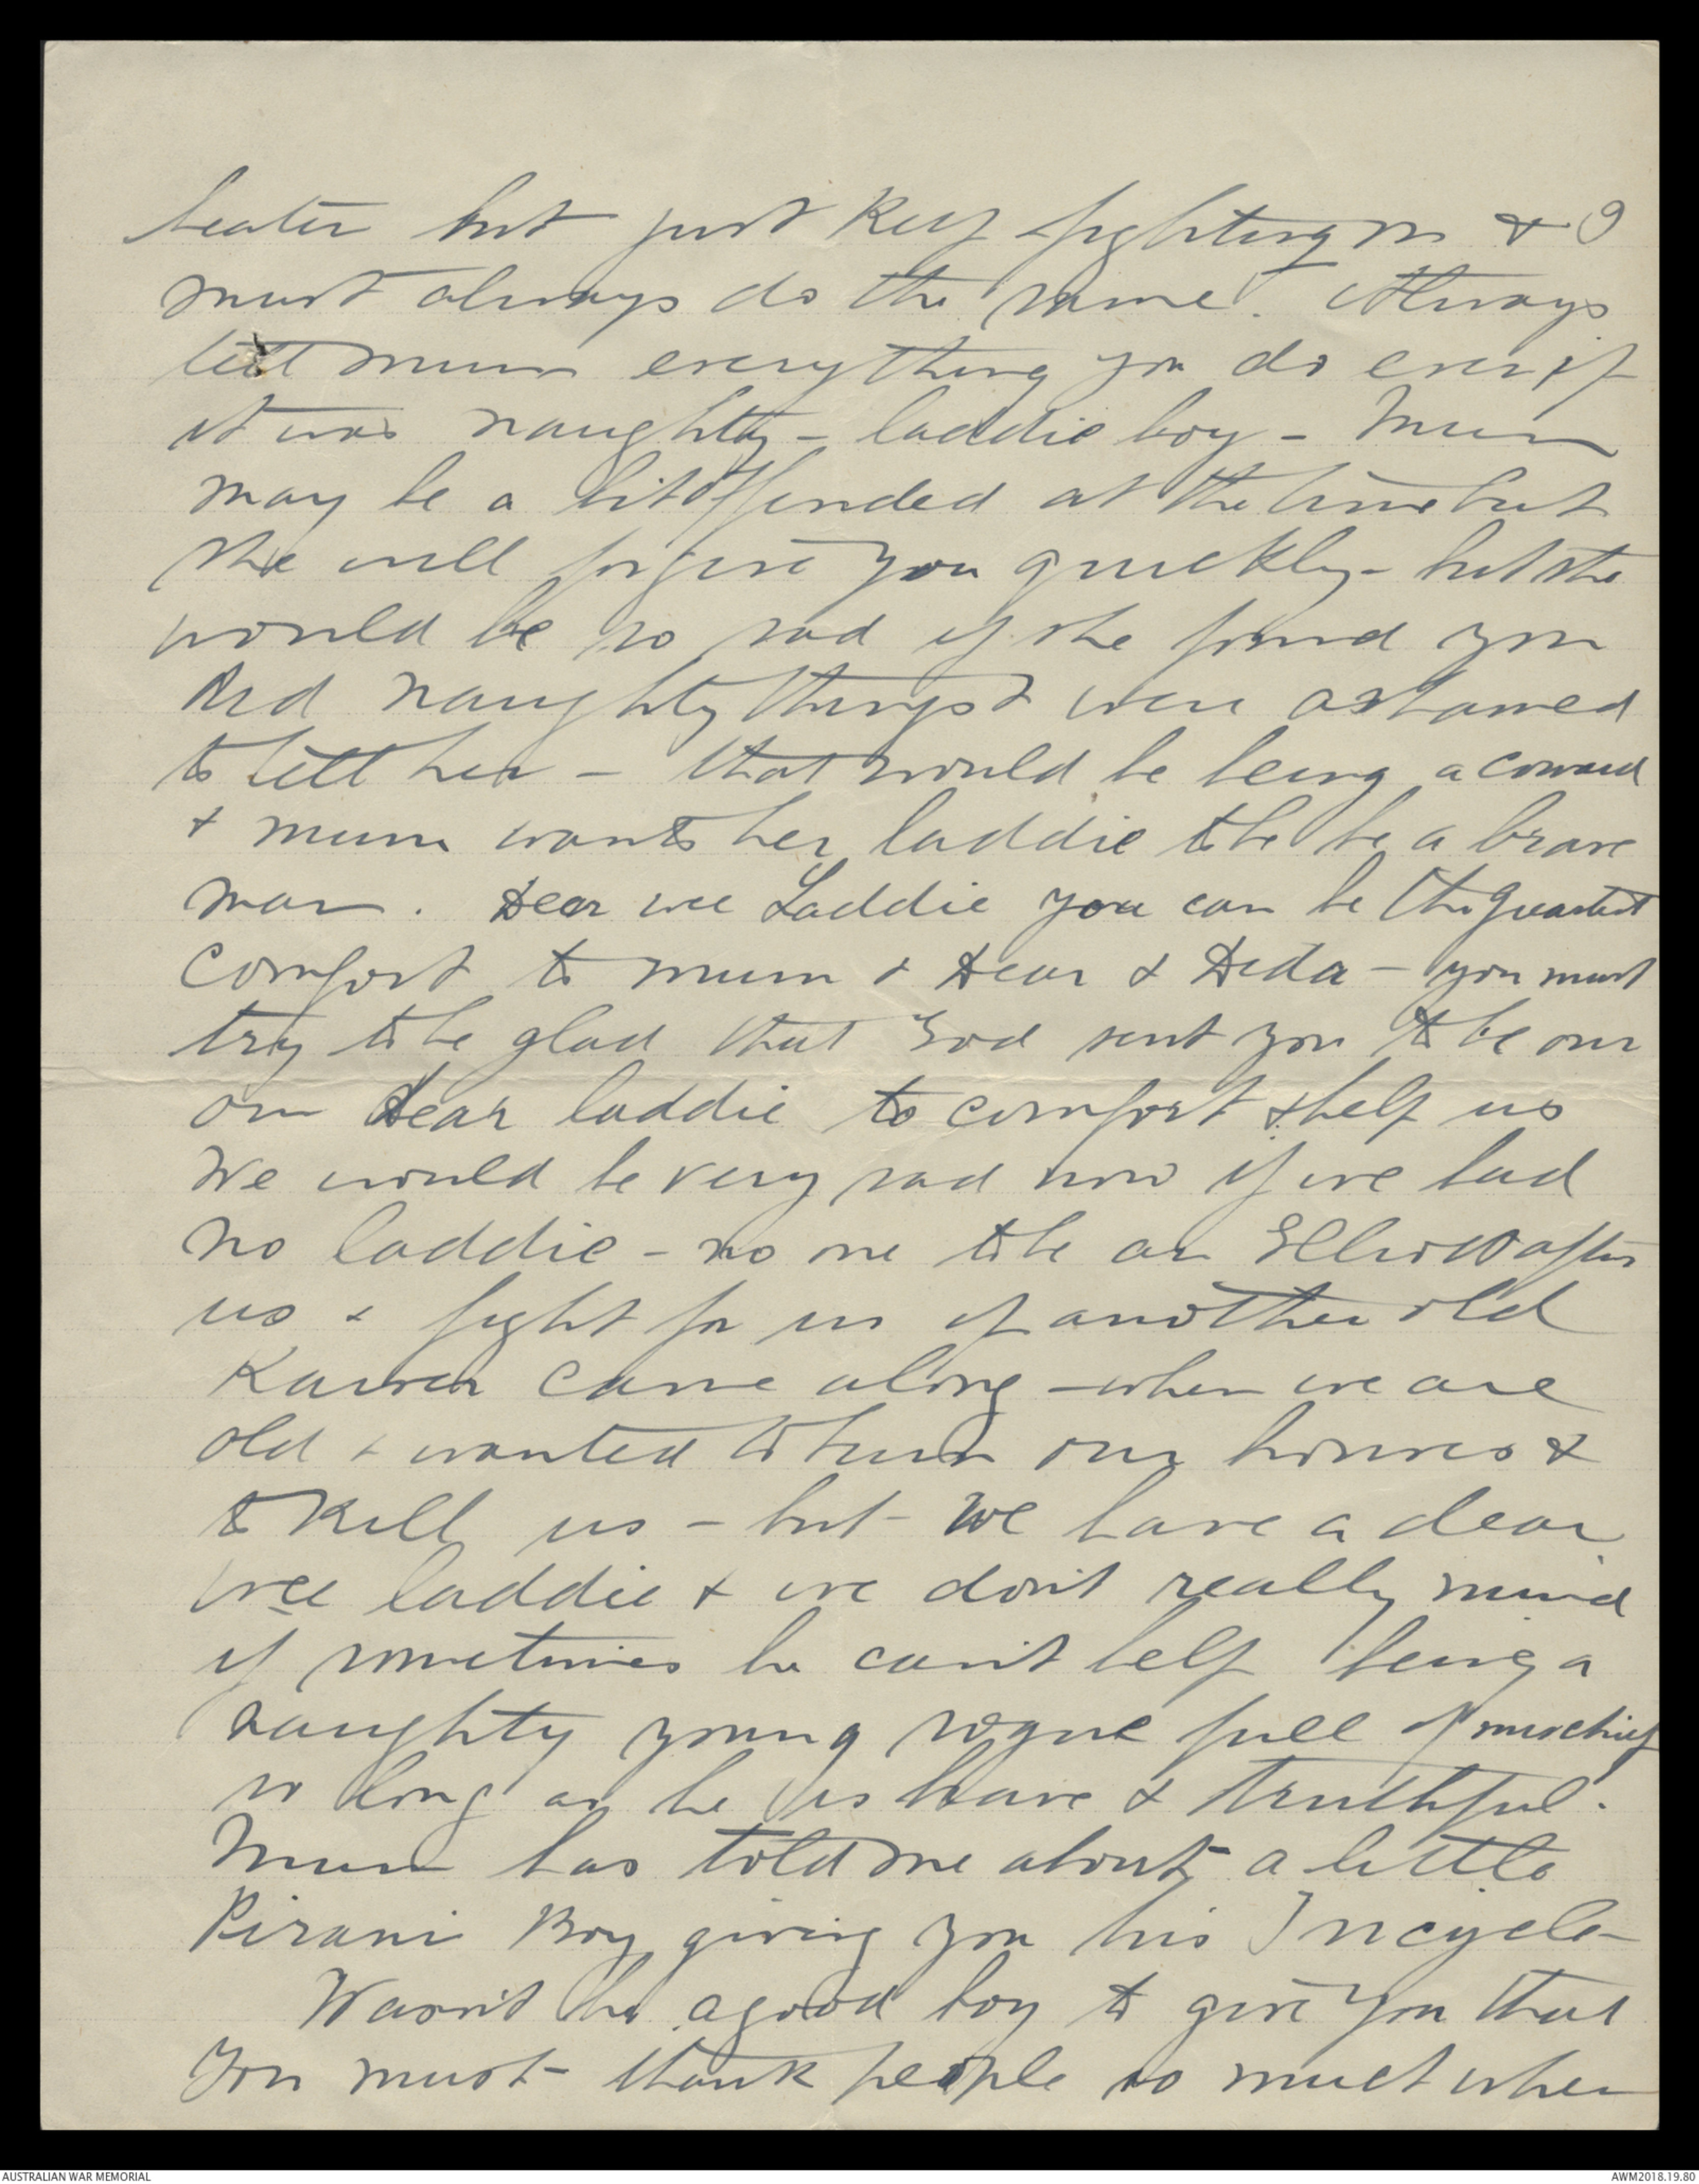 beaten but just keep fighting on & I
must always do the same. Always
tell mum everything you do even if
it was naughty – laddie boy – Mum
may be a bit offended at the time but
she will forgive you quickly – but she
would be so sad if she found you
did naughty things & were ashamed
to tell her – that would be being a coward
& mum wants her laddie to be a brave
man. Dear wee Laddie you can be the greatest
comfort to mum & Dear & Dida – you must
try to be glad that God sent you to be our
own Dear laddie to comfort & help us
We would be very sad now if we had
no laddie – no one to be an after
us & fight for us if another old
Kaiser came along – when we are
old & wanted to burn our houses &
to kill us – but – we have a dear
wee laddie & we don't really mind
if sometimes he can't help being a
naughty young rogue full of mischief
so long as he is brave & truthful.
Mum has told me about a little
Pirani Boy giving you his Tricycle –
Wasn't he a good boy to give you that
You must – thank people so much when
AUSTRALIAN WAR MEMORIAL
AWM2018.19.80